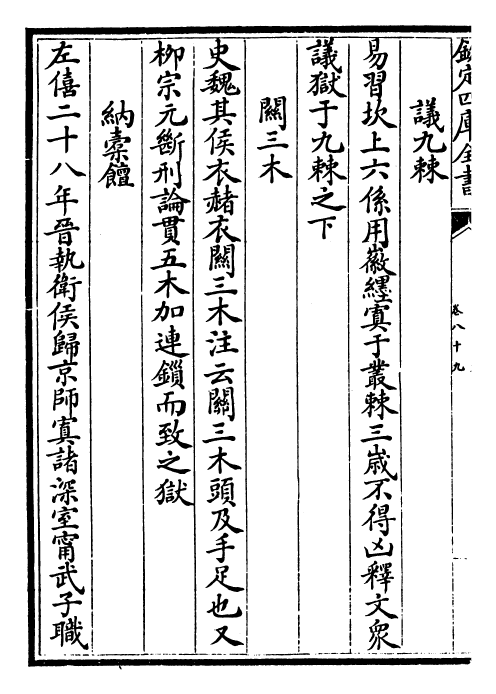 欽定四庫全書
卷八十九
議九棘
易習坎上六係用徽纆寘于叢棘三歲不得凶釋文衆
議獄于九棘之下
關三木
史魏其侯衣赭衣關三木注云關三木頭及手足也又
柳宗元斷刑論貫五木加連鎖而致之獄
納槖饘
左僖二十八年晉執衛侯歸京師寘諸深室甯武子職